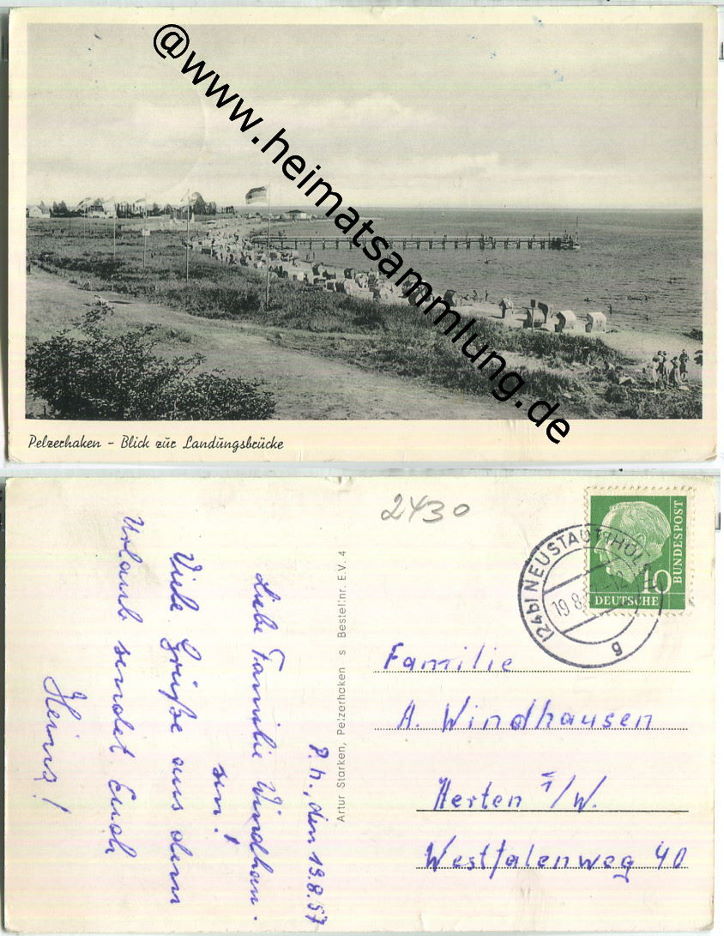 @www.heimatsammlung.de
Pelzerhaken - Blick zur Landungsbrücke
2430
DEUTSCHE
BUNDESPOST
10
(24b) NEUSTADT HOL
19.8.
g
Artur Starken, Pelzerhaken s Bestel:nr. E.V. 4
P. h., den 19.8.57
Liebe Familie Windhau-
sen!
Viele Grüße aus dem
Urlaub sendet Euch
Heinz!
Familie
A. Windhausen
Herten i/W.
Westfalenweg 40